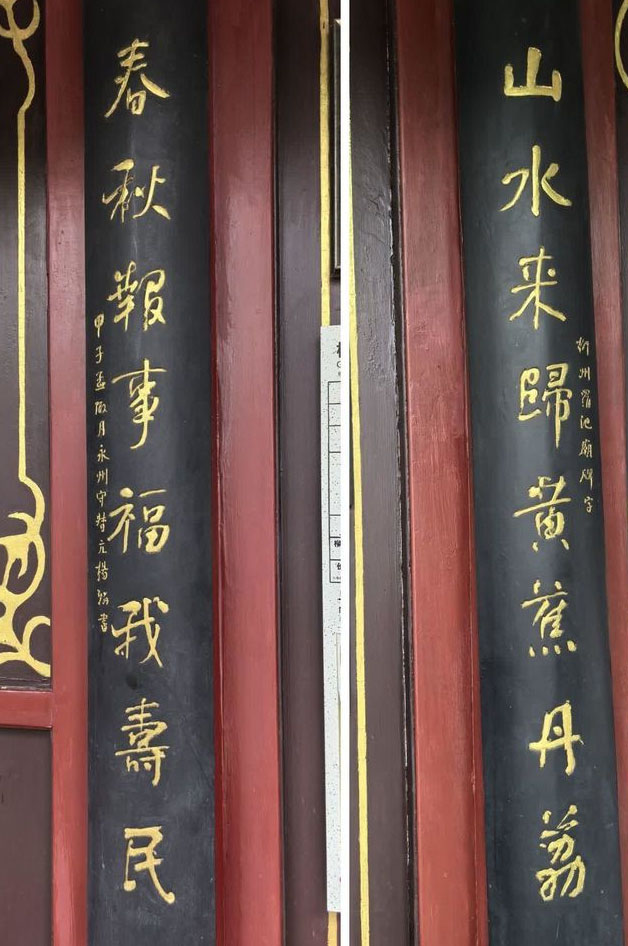 山水来歸黄蕉丹荔
柳州羅池廟碑字
春秋報事福我壽民
甲子孟陬月永州守督亢楊翰書